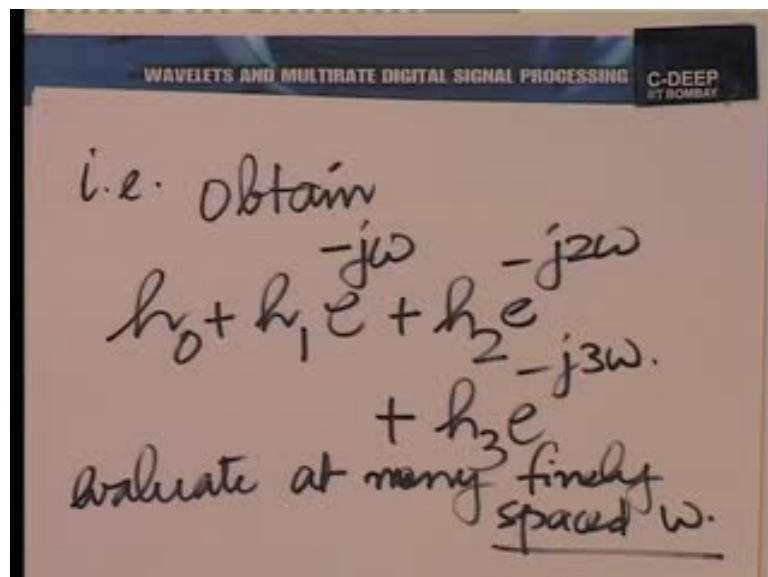 WAVELETS AND MULTIRATE DIGITAL SIGNAL PROCESSING C-DEEP
IIT BOMBAY
i.e. obtain
h₀ + h₁e^{-jω} + h₂e^{-j2ω}
+ h₃e^{-j3ω}.
evaluate at many finely
spaced ω.